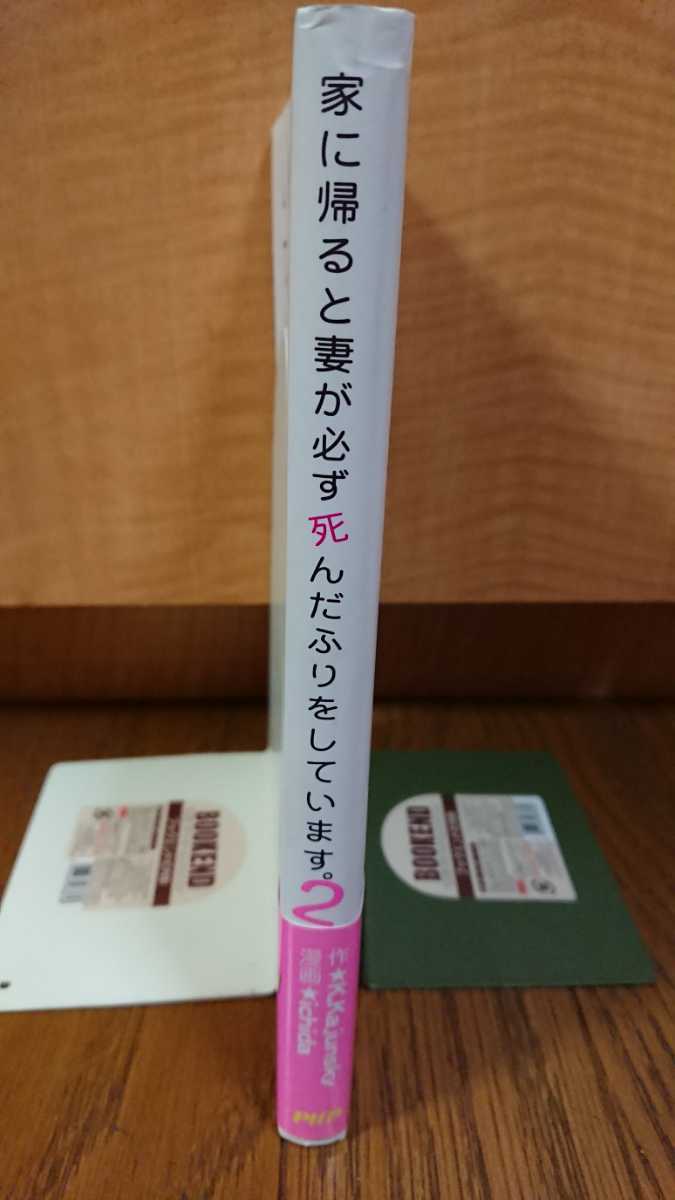 家に帰ると妻が必ず死んだふりをしています。
2
作★K.Kajunsky
漫画★ichida
BOOKEND
BOOKEND